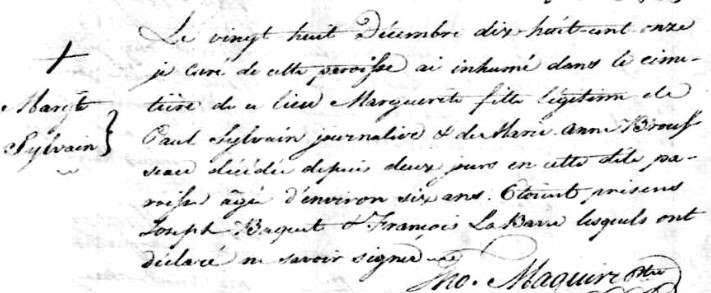 Le vingt huit Décembre dix hûit-cent-onze
je Curé de cette paroisse ai inhumé dans le cime-
+
tière de ce lieu Marguerite fille légitime de
Margte
Paul Sylvain journalier & de Marie Anne Brous-
Sylvain }
seau décédée depuis deux jours en cette dite pa-
roisse âgée d'environ six ans. Etoient présens
Joseph Baquet & François LaBarre lesquels ont
déclaré ne savoir signer
Tho. Maguire Ptre